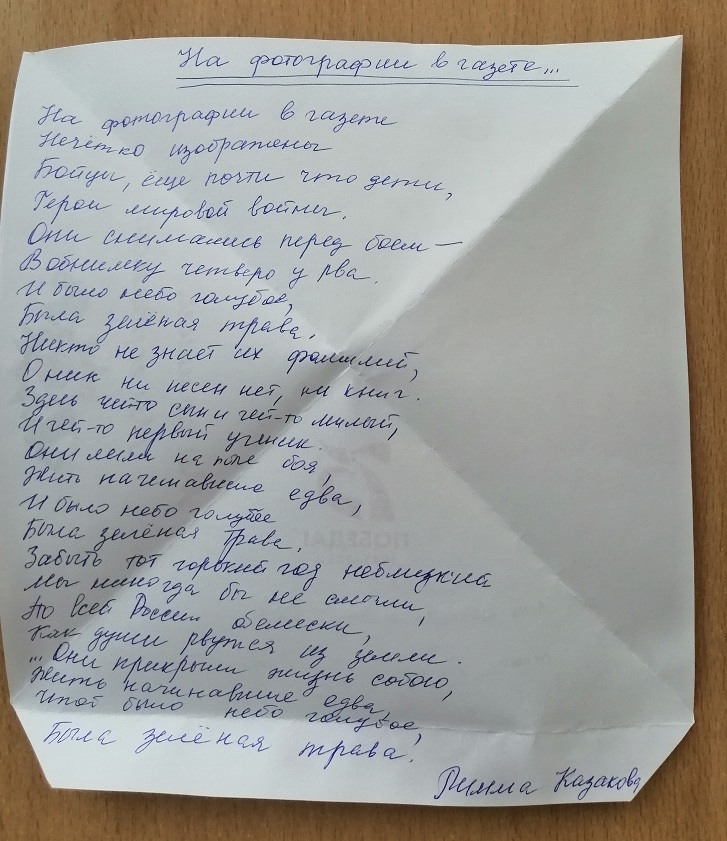 На фотографии в газете...
На фотографии в газете
Нечётко изображены
Бойцы, ёще почти что дети,
Герои мировой войны.
Они снимались перед боем —
В обнимку четверо у рва.
И было небо голубое,
Была зелёная трава.
Никто не знает их фамилий,
О них ни песен нет, ни книг.
Здесь чей-то сын и чей-то милый,
И чей-то первый ученик.
Они легли на поле боя,
Жить начинавшие едва,
И было небо голубое
Была зелёная трава.
Забыть тот горький год неблизкий
Мы никогда бы не смогли,
По всей России обелиски,
Как души рвутся из земли.
...Они прикрыли жизнь собою,
Жить начинавшие едва,
Чтоб было небо голубое,
Была зелёная трава.
Римма Казакова
ПОБЕДА!